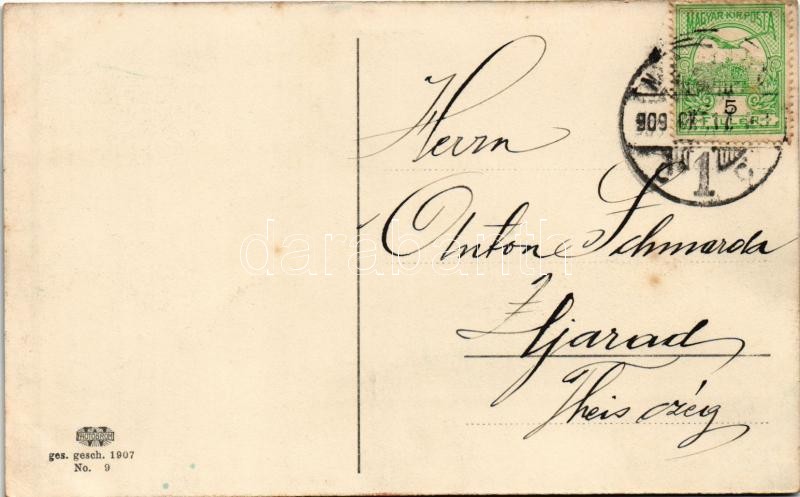 MAGYAR KIR. POSTA
5
FILLER
909
1
Herrn
Anton Schmarda
Ujarad
Theisczég
darabanth
ges. gesch. 1907
No. 9